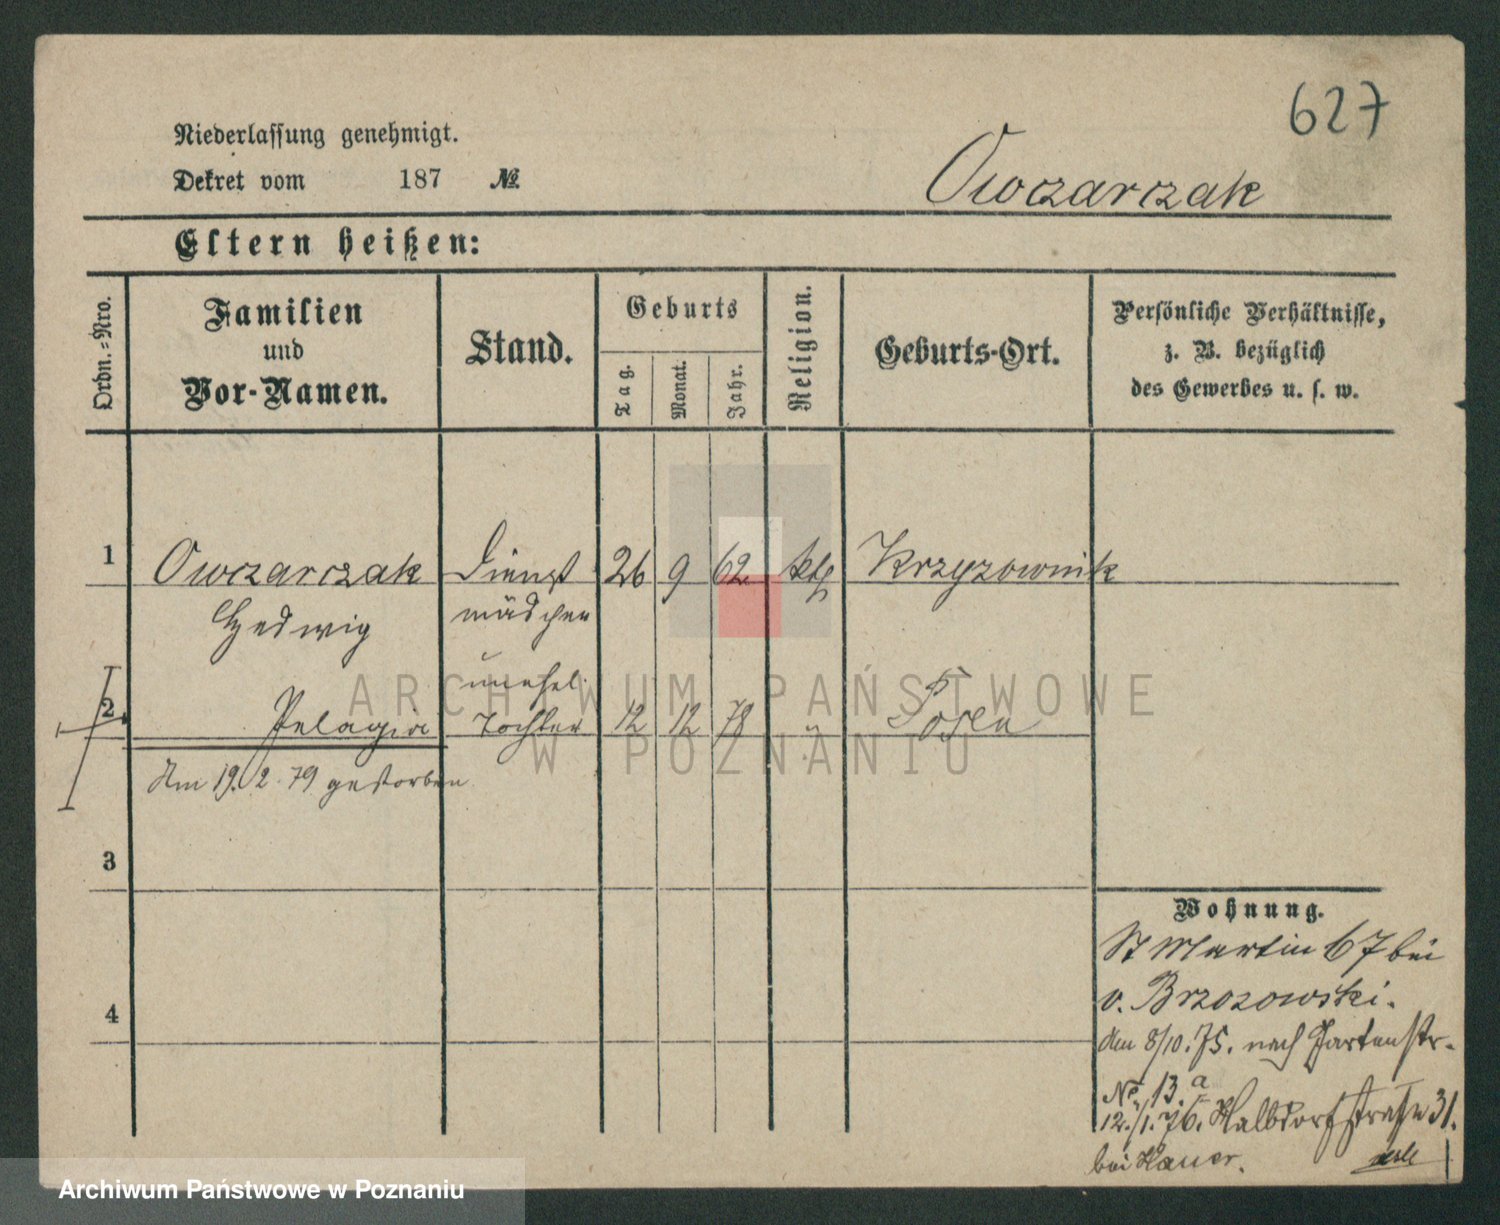 627
Niederlassung genehmigt.
Dekret vom 187 №
Owczarczak
Eltern heißen:
Ordn.=Nro.
Familien
und
Vor-Namen.
Stand.
Geburts
Tag.
Monat.
Jahr.
Religion.
Geburts-Ort.
Persönliche Verhältnisse,
z. B. bezüglich
des Gewerbes u. s. w.
1 Owczarczak Dienst 26 9 62 kth Krzyzownik
Hedwig mädchen
unehel.
2 Pelagia Tochter 12 12 78 " Posen
Am 19. 2. 79 gestorben
3
4
Wohnung.
St Martin 67 bei
v. Brzozowski.
den 8/10. 75. nach Gartenstr.
No. 13.a
12./1. 76. Halbdorfstraße 31.
bei Hauer.
ARCHIWUM PAŃSTWOWE
W POZNANIU
Archiwum Państwowe w Poznaniu